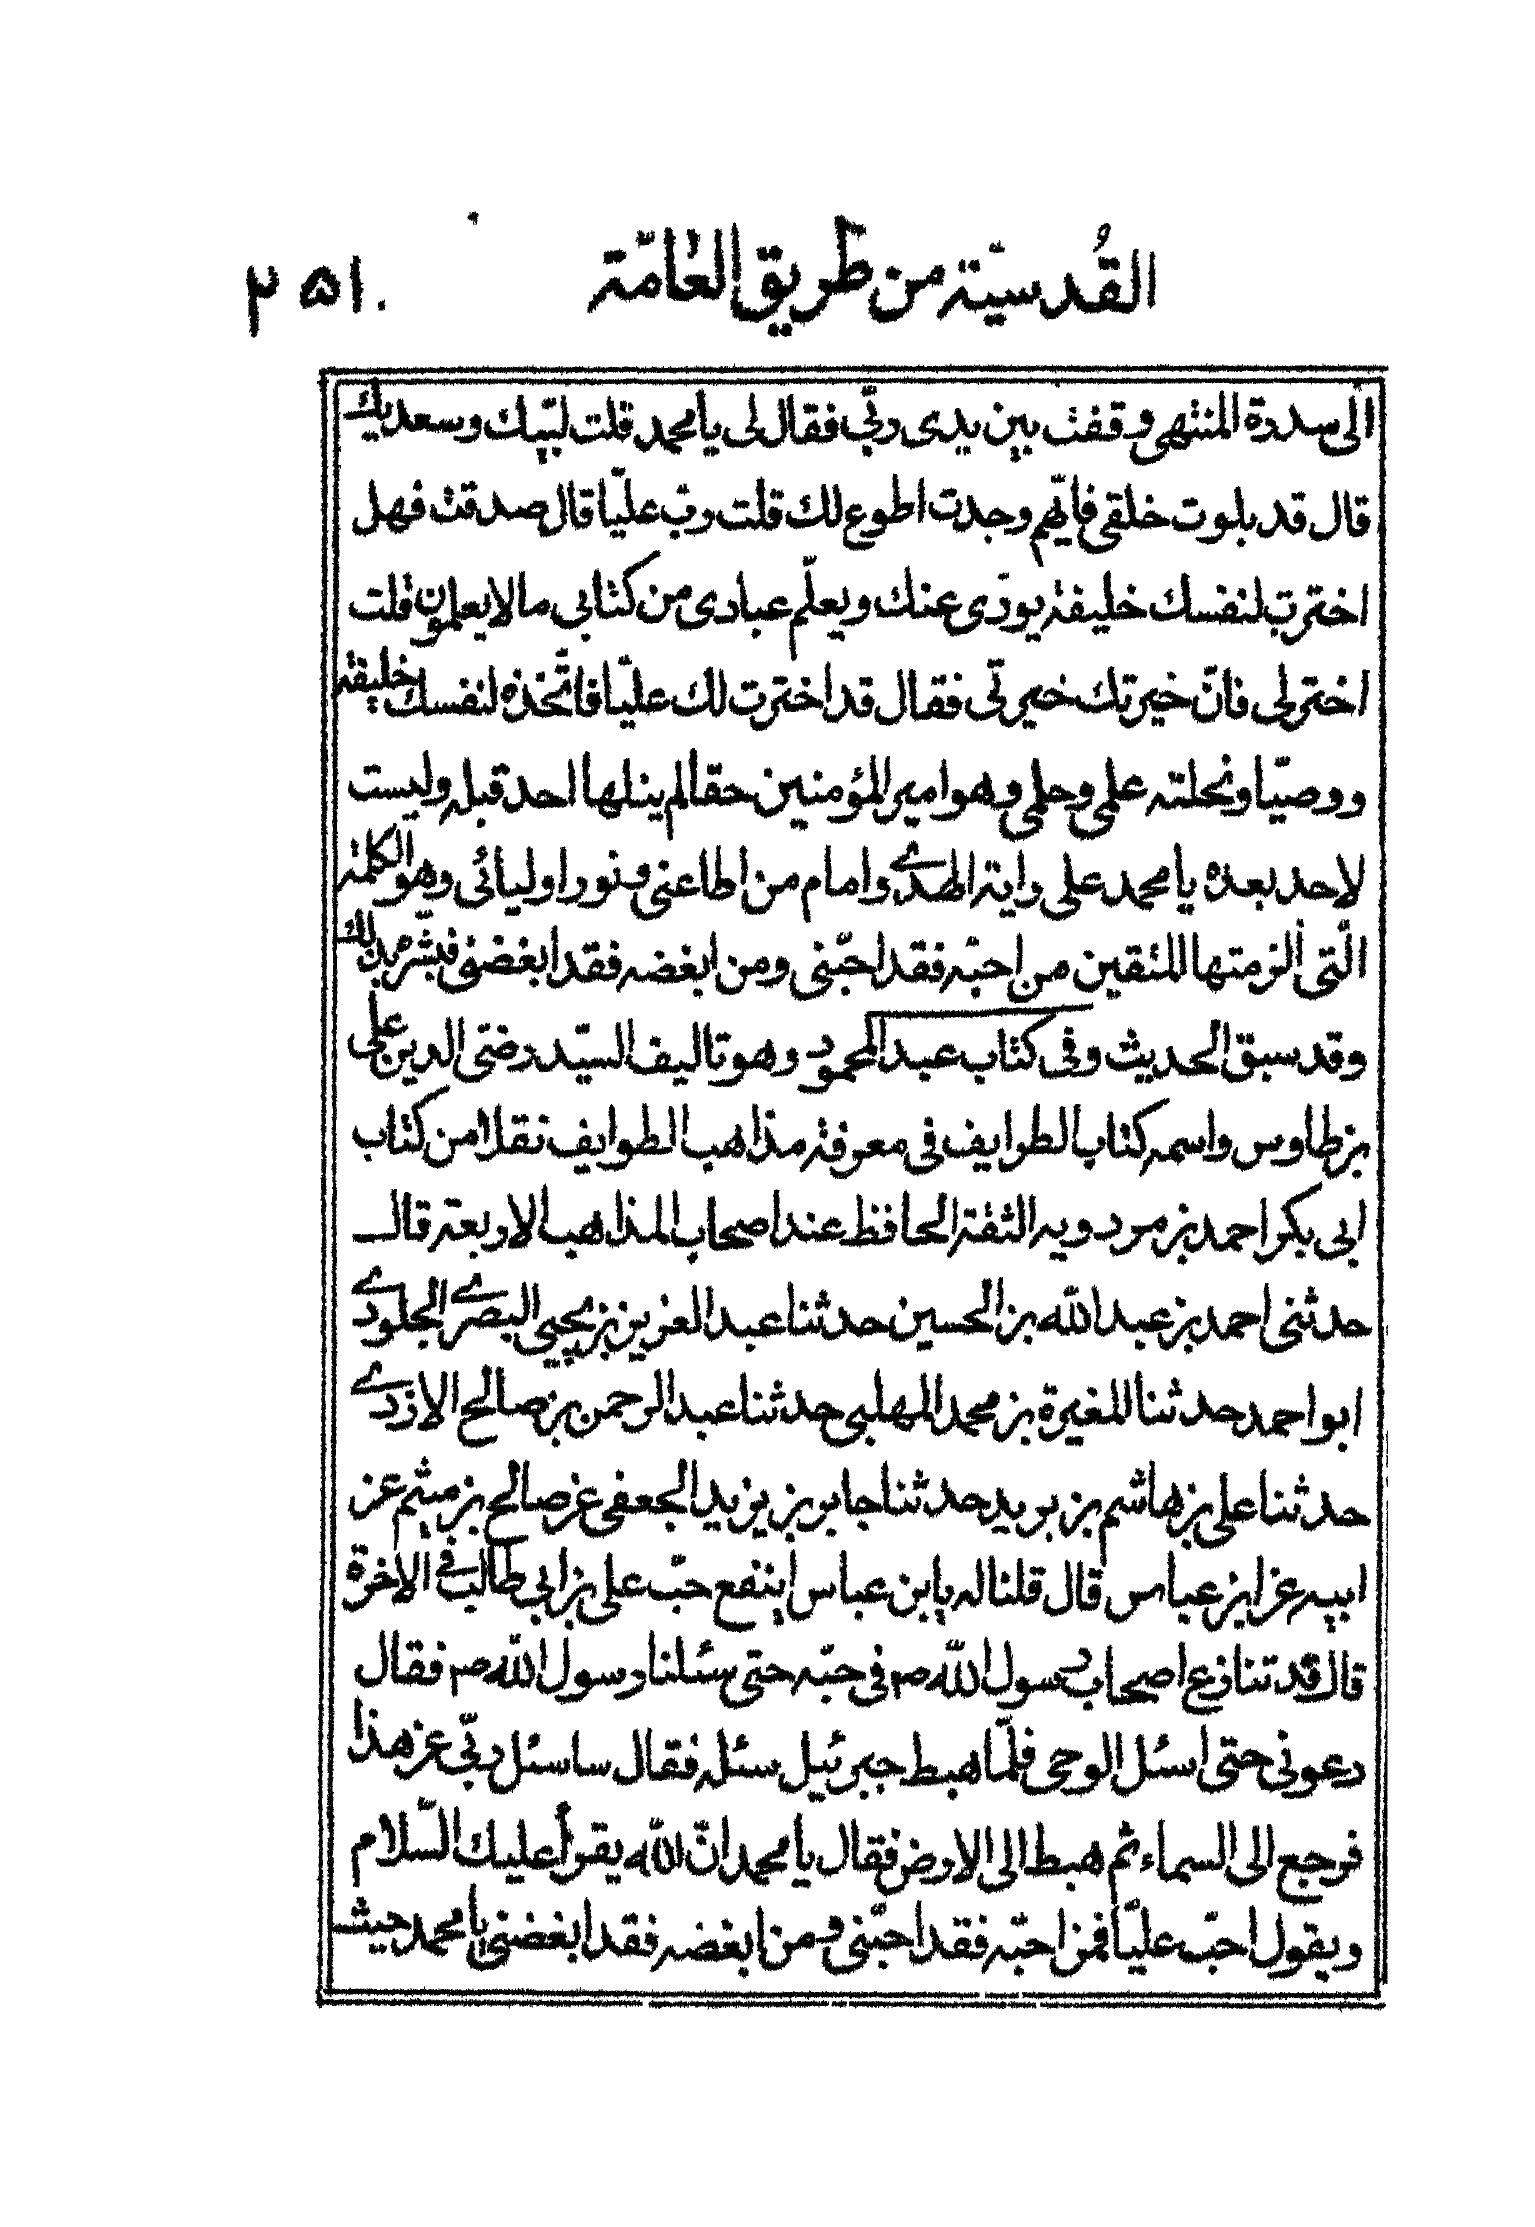 القُدسيّة من طريق العامّة ٢٥١
الى سدرة المنتهى وقفت بين يدى ربّى فقال لى يا محمد قلت لبّيك وسعديك
قال قد بلوت خلقى فايّهم وجدت اطوع لك قلت ربّ عليّا قال صدقت فهل
اخترت لنفسك خليفة يودّى عنك ويعلّم عبادى من كتابى مالا يعلمون قلت
اختر لى فانّ خيرتك خيرتى فقال قد اخترت لك عليّا فاتّخذه لنفسك خليفة
ووصيّا ونحلته علمى وحلمى وهو امير المؤمنين حقا لم ينلها احد قبله وليست
لاحد بعده يا محمد على راية الهدى وامام من اطاعنى ونور اوليائى وهو الكلمة
الّتى الزمتها المتقين من احبّه فقد احبّنى ومن ابغضه فقد ابغضنى فبشّره بذلك
وقد سبق الحديث وفى كتاب عبد المحمود وهو تاليف السيّد رضى الدين على
بن طاوس واسمه كتاب الطرايف فى معرفة مذاهب الطوايف نقلا من كتاب
ابى بكر احمد بن مردويه الثقة الحافظ عند اصحاب المذاهب الاربعة قال
حدثنى احمد بن عبد الله بن الحسين حدثنا عبد العزيز بن يحيى البصرى الجلودى
ابو احمد حدثنا المغيرة بن محمد المهلبى حدثنا عبد الرحمن بن صالح الازدى
حدثنا على بن هاشم بن بريد حدثنا جابر بن يزيد الجعفى عن صالح بن ميثم عن
ابيه عن ابن عباس قال قلنا له يابن عباس اينفع حبّ على بن ابى طالب فى الاخرة
قال قد تنازع اصحاب رسول الله ص فى حبّه حتى سئلنا رسول الله ص فقال
دعونى حتى اسئل الوحى فلمّا هبط جبرئيل سئله فقال ساسئل ربّى عن هذا
فرجع الى السماء ثم هبط الى الارض فقال يا محمد انّ الله يقرأ عليك السّلام
ويقول احبّ عليّا فمن احبّه فقد احبّنى ومن ابغضه فقد ابغضنى يا محمد حيث